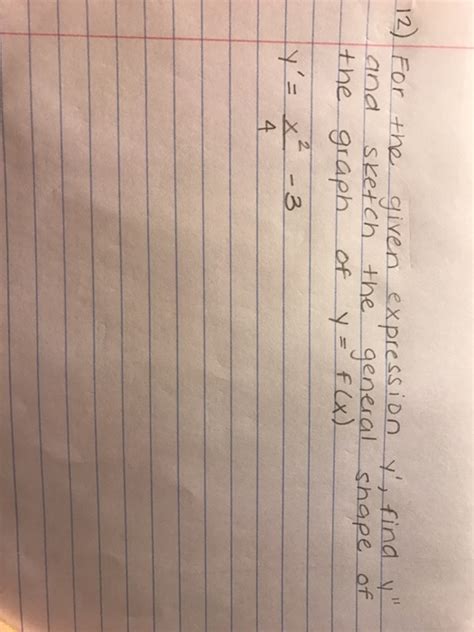 12) For the given expression y', find y"
and sketch the general shape of
the graph of y = f(x)
y' = x²/4 - 3